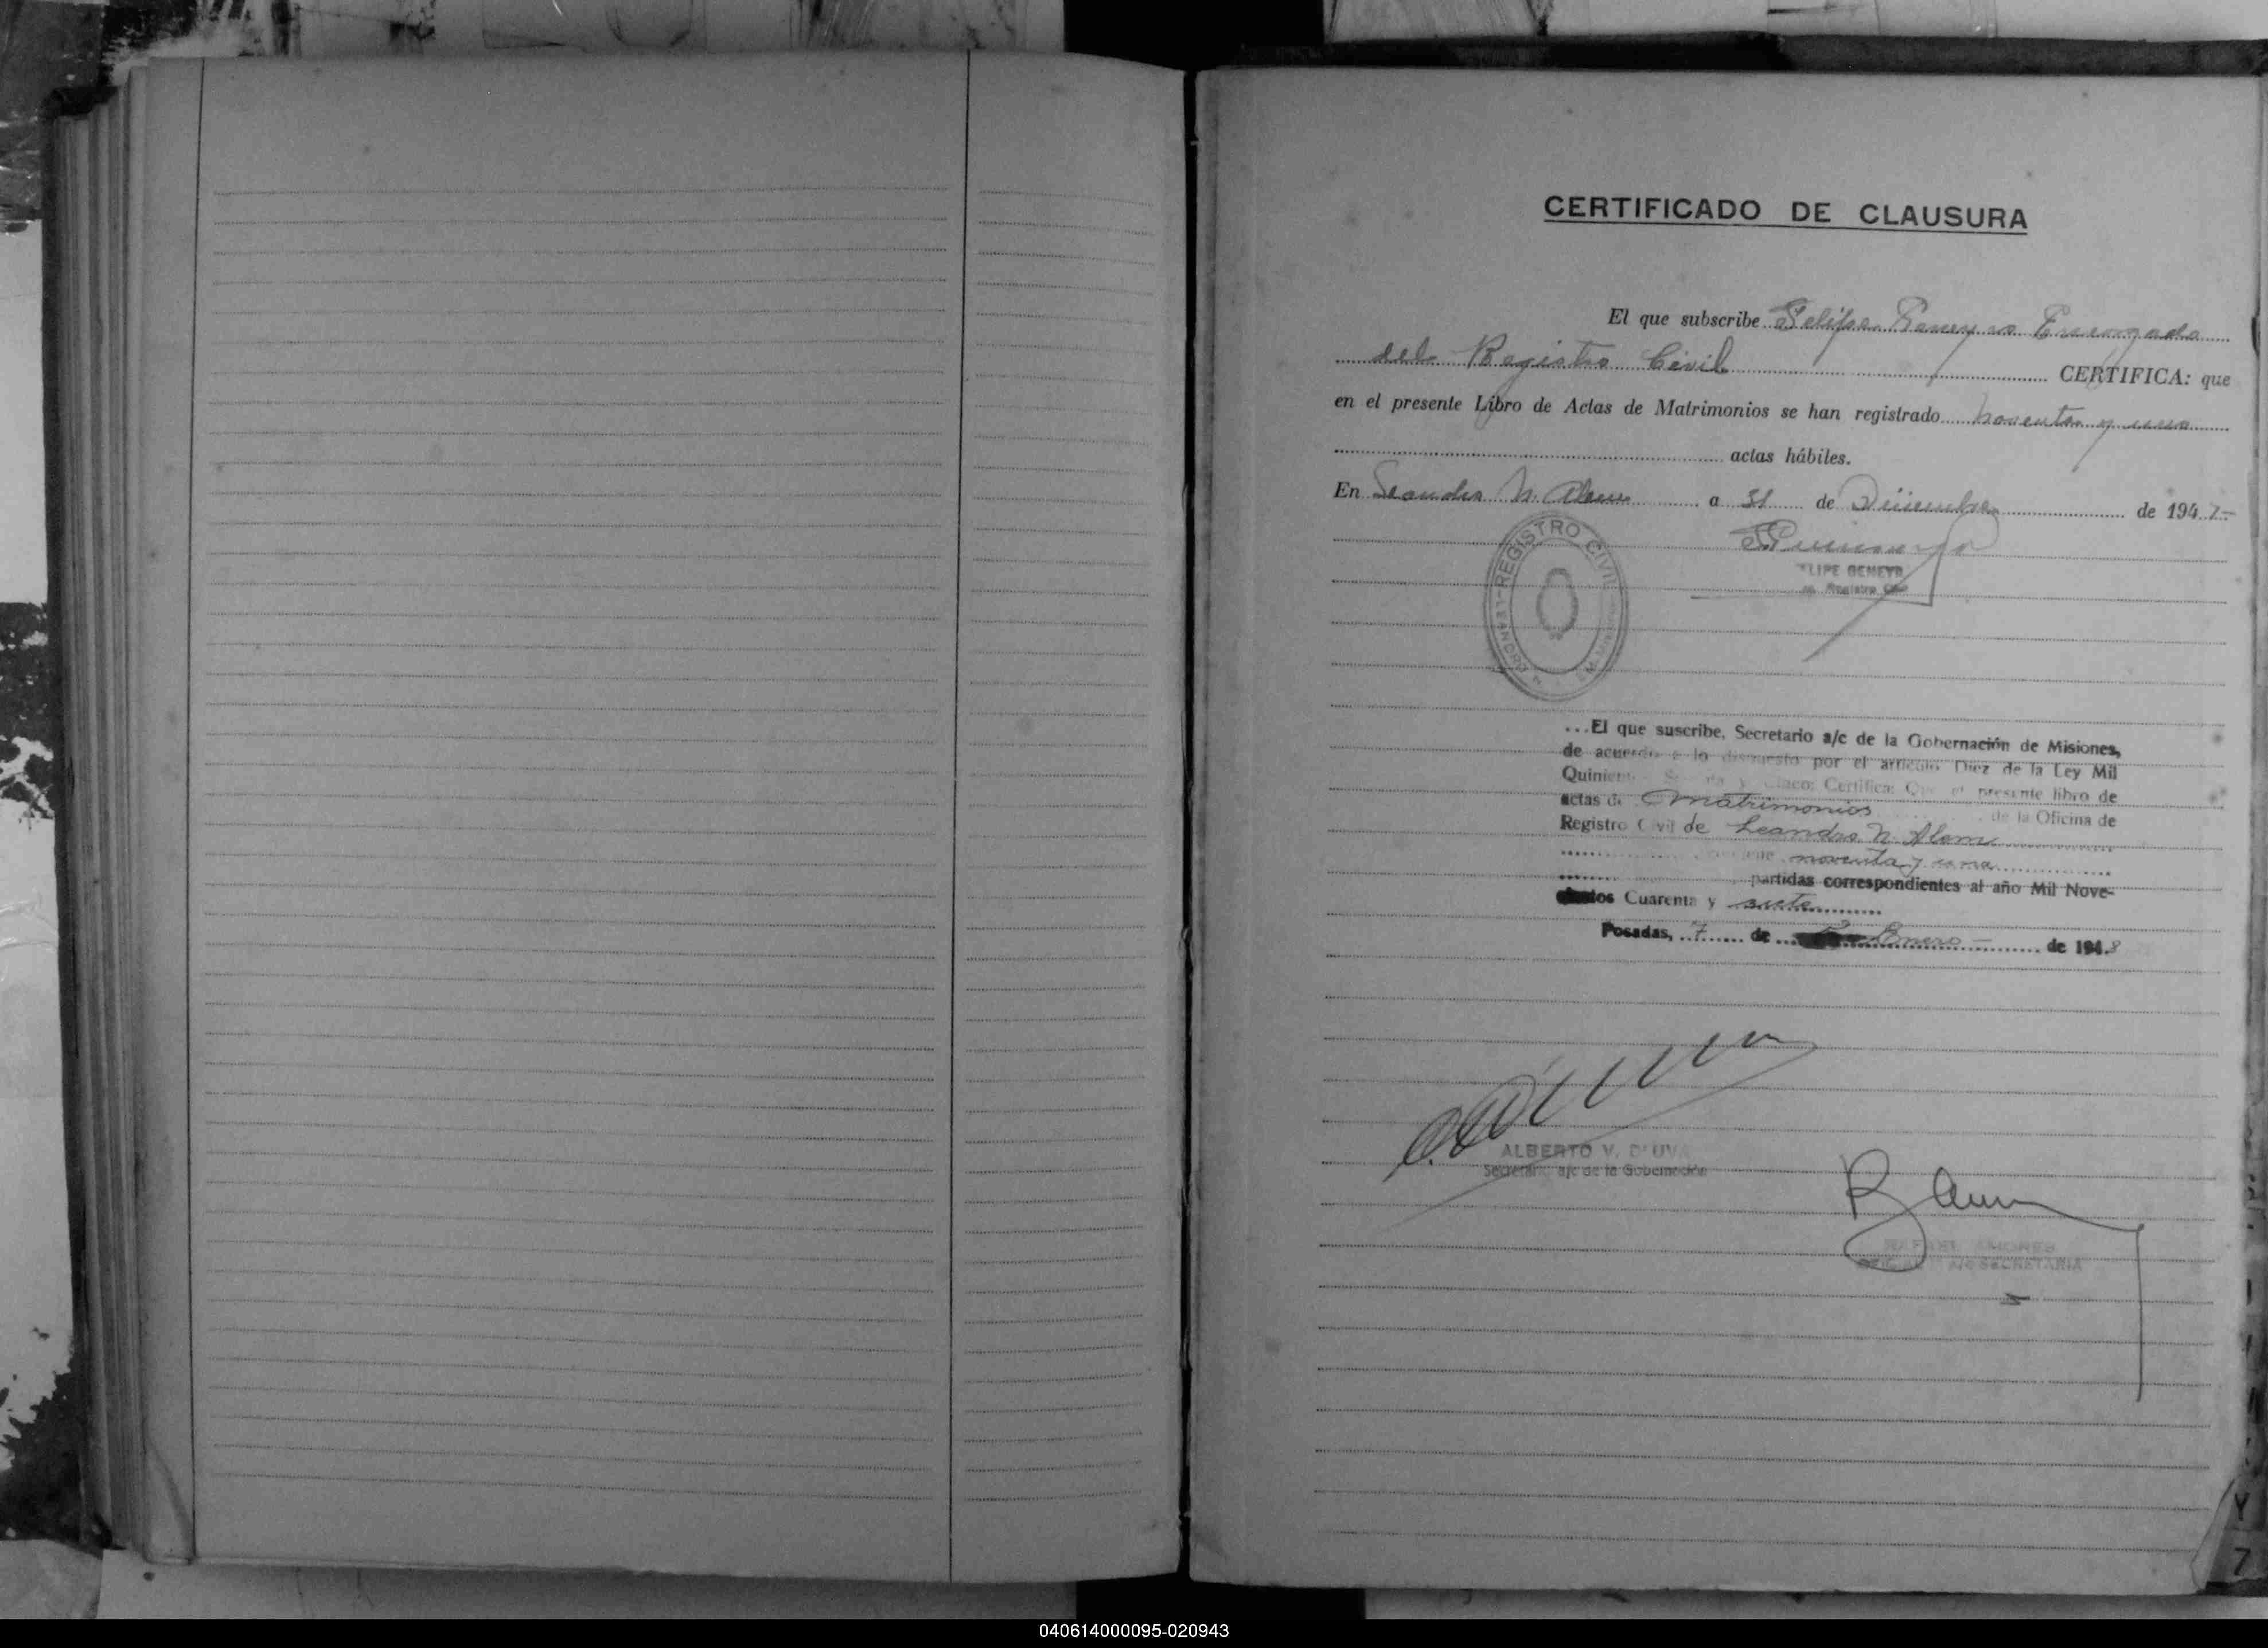 CERTIFICADO DE CLAUSURA
El que subscribe Felipe Geneyro Encargado
del Registro Civil CERTIFICA: que
en el presente Libro de Actas de Matrimonios se han registrado noventa y una
actas hábiles.
En Leandro N. Alem a 31 de Diciembre de 1947-
REGISTRO CIVIL
LEANDRO N.
LIPE GENEYR
Registro
...El que suscribe, Secretario a/c de la Gobernación de Misiones,
de acuerdo a lo dispuesto por el artículo Diez de la Ley Mil
Certifica: Que el presente libro de
actas de Matrimonios de la Oficina de
Registro Civil de Leandro N. Alem
noventa y una
partidas correspondientes al año Mil Nove-
Cuarenta y siete
Posadas, 7 de Enero - de 1948
ALBERTO V. D'UV
Secretario a/c de la Gobernación
RAFAEL AMORES
OFICIAL A/C SECRETARIA
Y
7
040614000095-020943